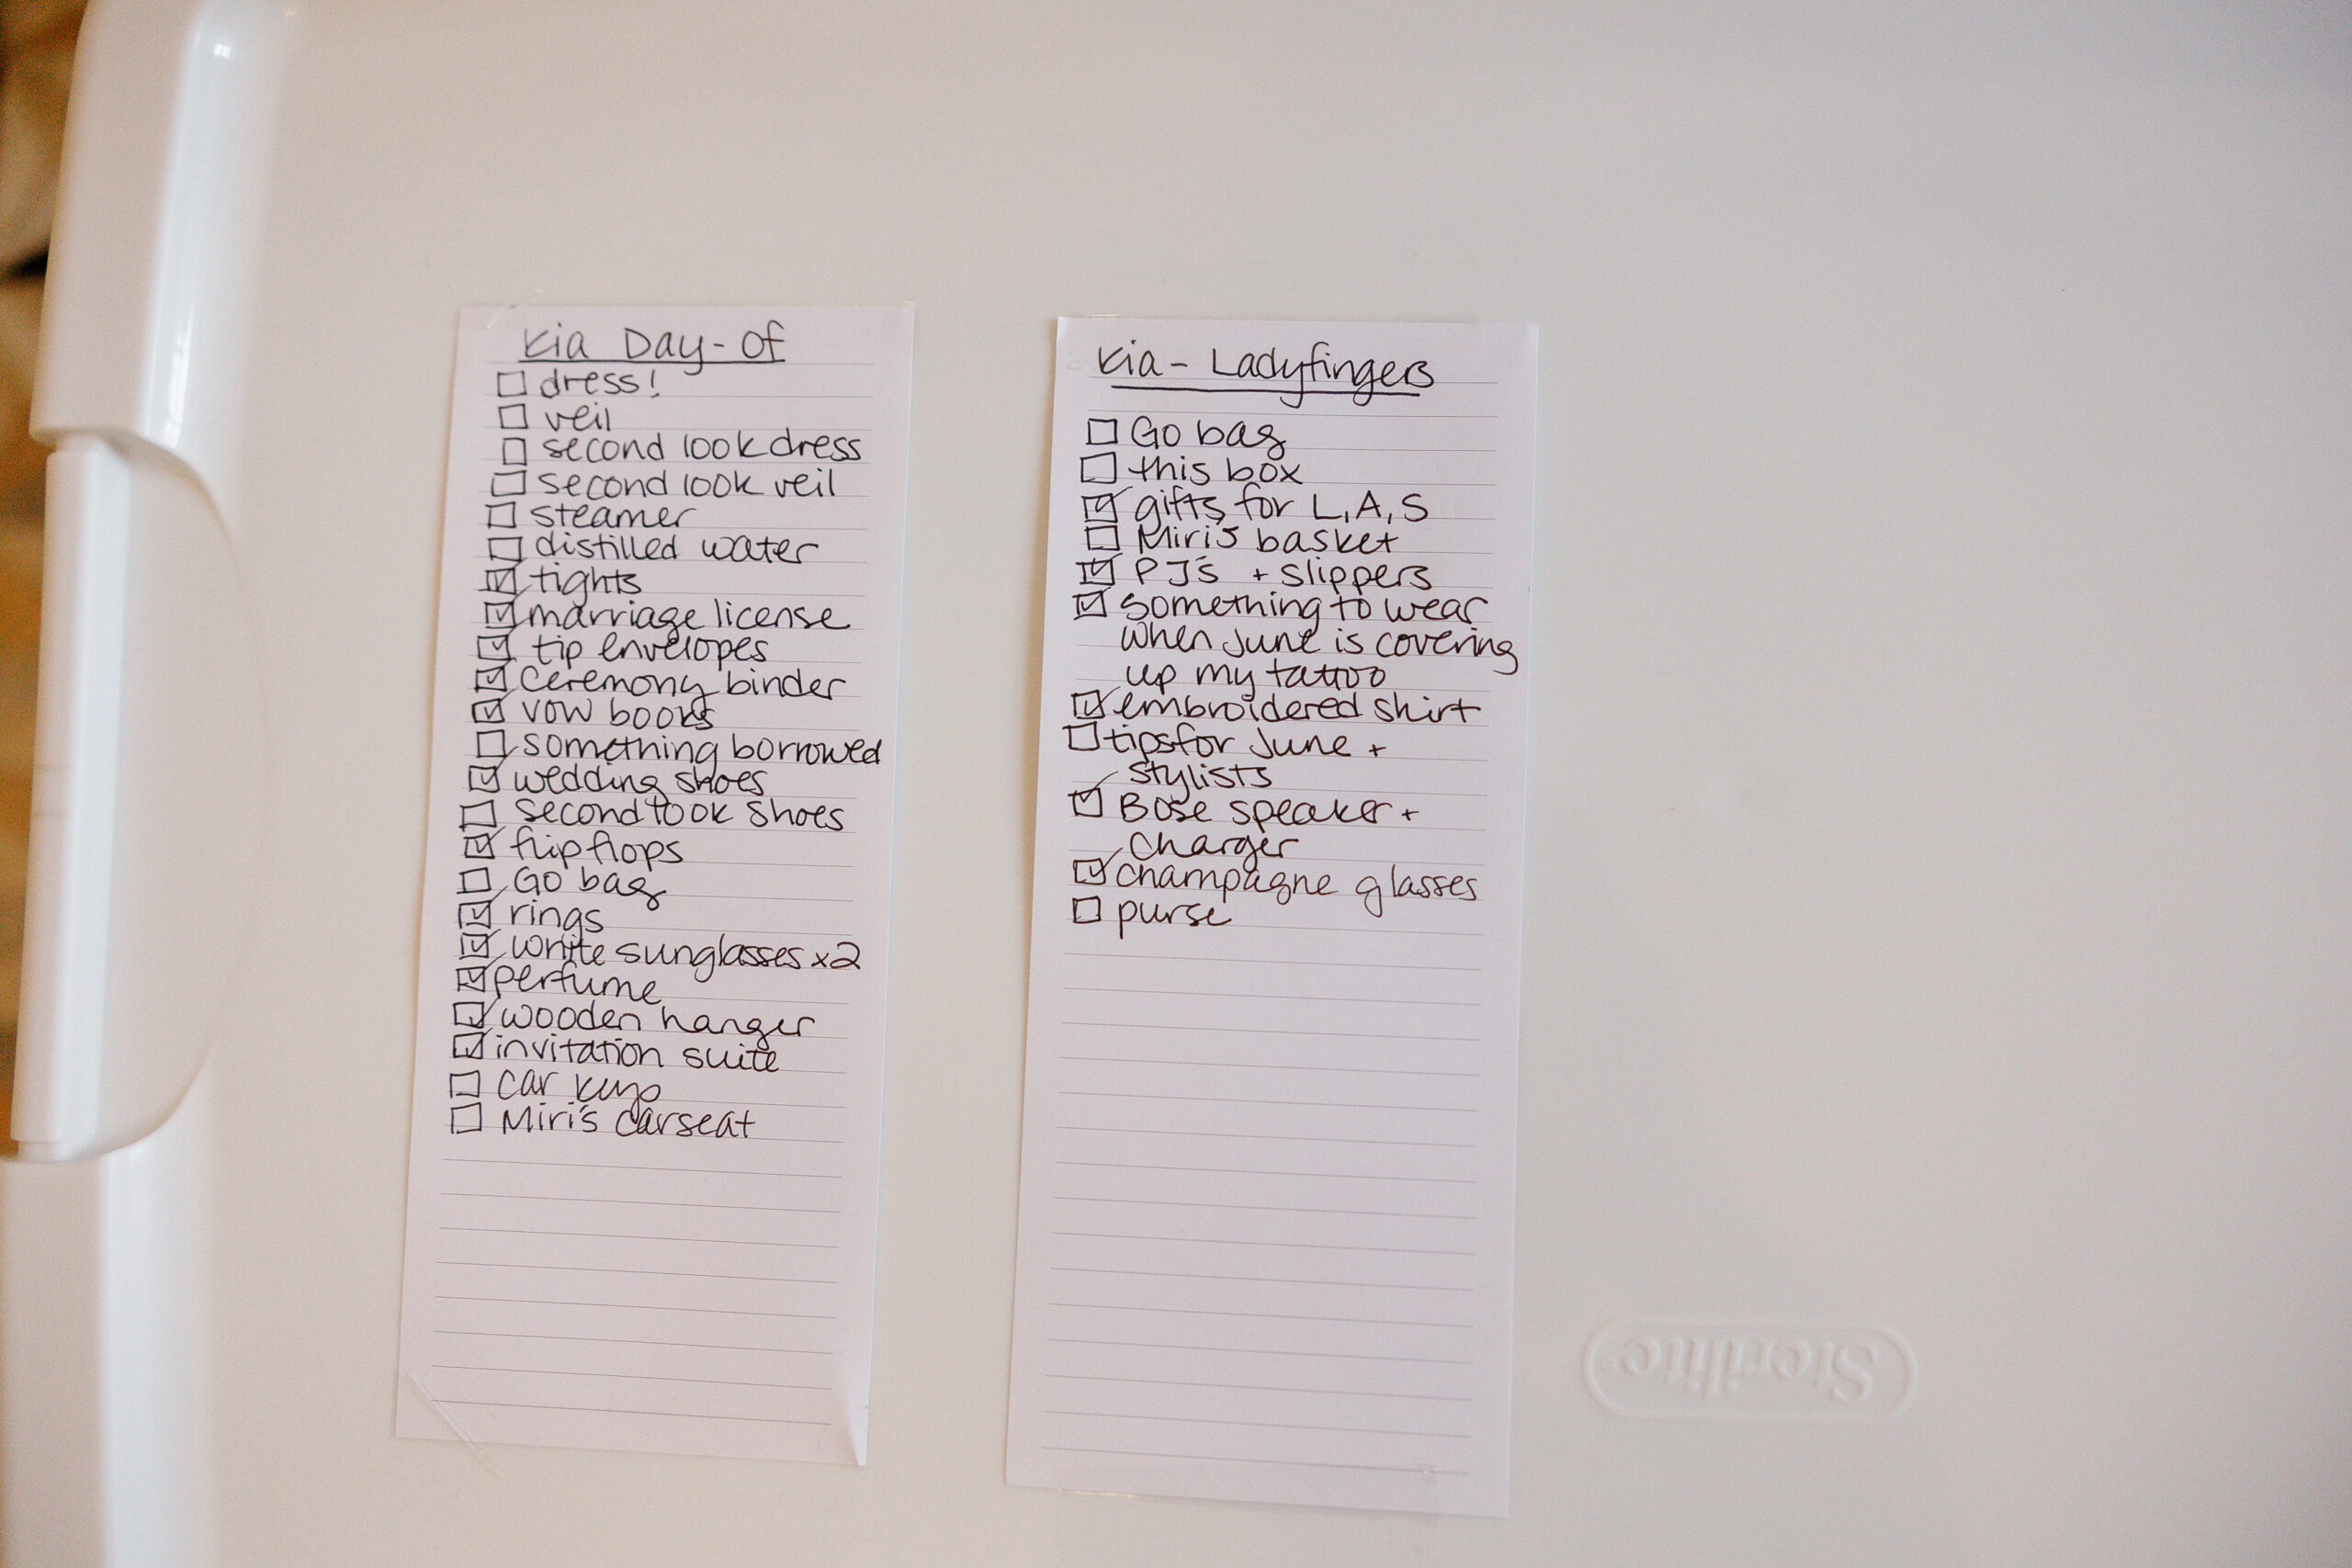 Kia Day-Of
☐ dress!
☐ veil
☐ second look dress
☐ second look veil
☐ steamer
☐ distilled water
☑ tights
☑ marriage license
☑ tip envelopes
☑ Ceremony binder
☑ vow books
☐ something borrowed
☑ wedding shoes
☐ second look shoes
☑ flip flops
☐ Go bag
☑ rings
☑ white sunglasses x2
☑ perfume
☑ wooden hanger
☑ invitation suite
☐ car keys
☐ Miri's carseat
Kia - Ladyfingers
☐ Go bag
☐ this box
☑ gifts for L, A, S
☐ Miri's basket
☑ PJ's + slippers
☑ something to wear
when June is covering
up my tattoo
☑ embroidered shirt
☐ tips for June +
stylists
☑ Bose speaker +
charger
☑ champagne glasses
☐ purse
Sterilite